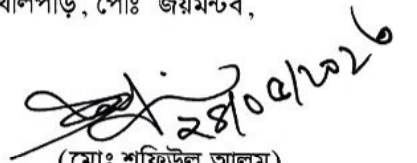 খালপাড়, পোঃ জয়মন্টব,
২৪/০৫/২০২৬
(মোঃ শফিউল আলম)